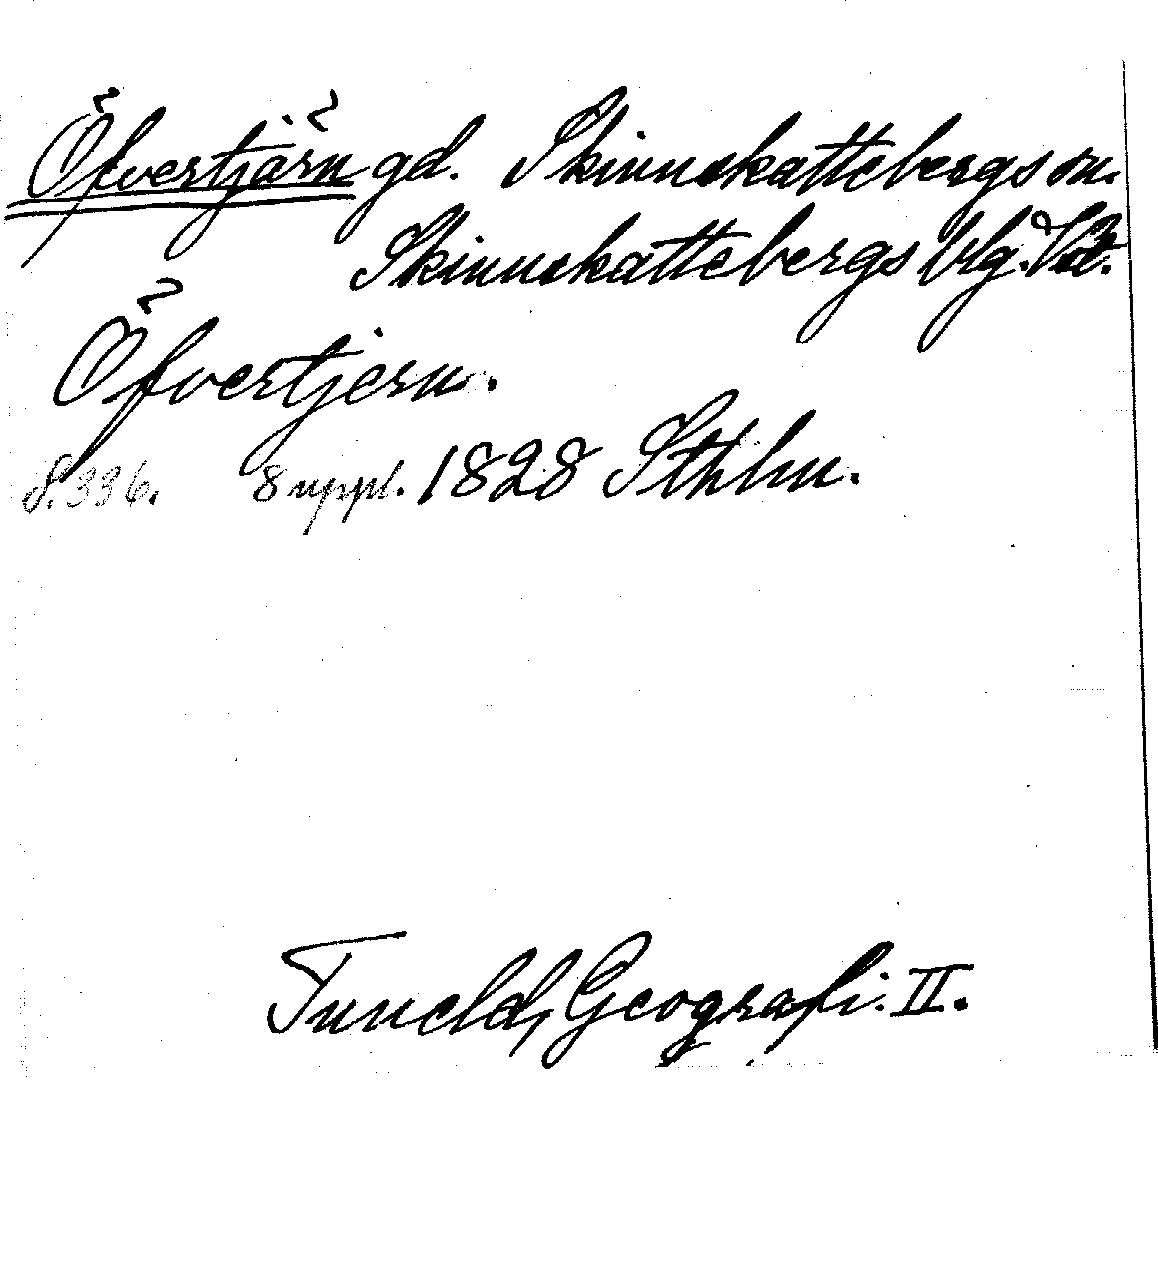 Öfvertjärn gd. Skinnskattebergs sn.
Skinnskattebergs blg. Vstm.
Öfvertjern.
S. 336. 8 uppl. 1828 Sthlm.
Tuneld, Geografi. II.